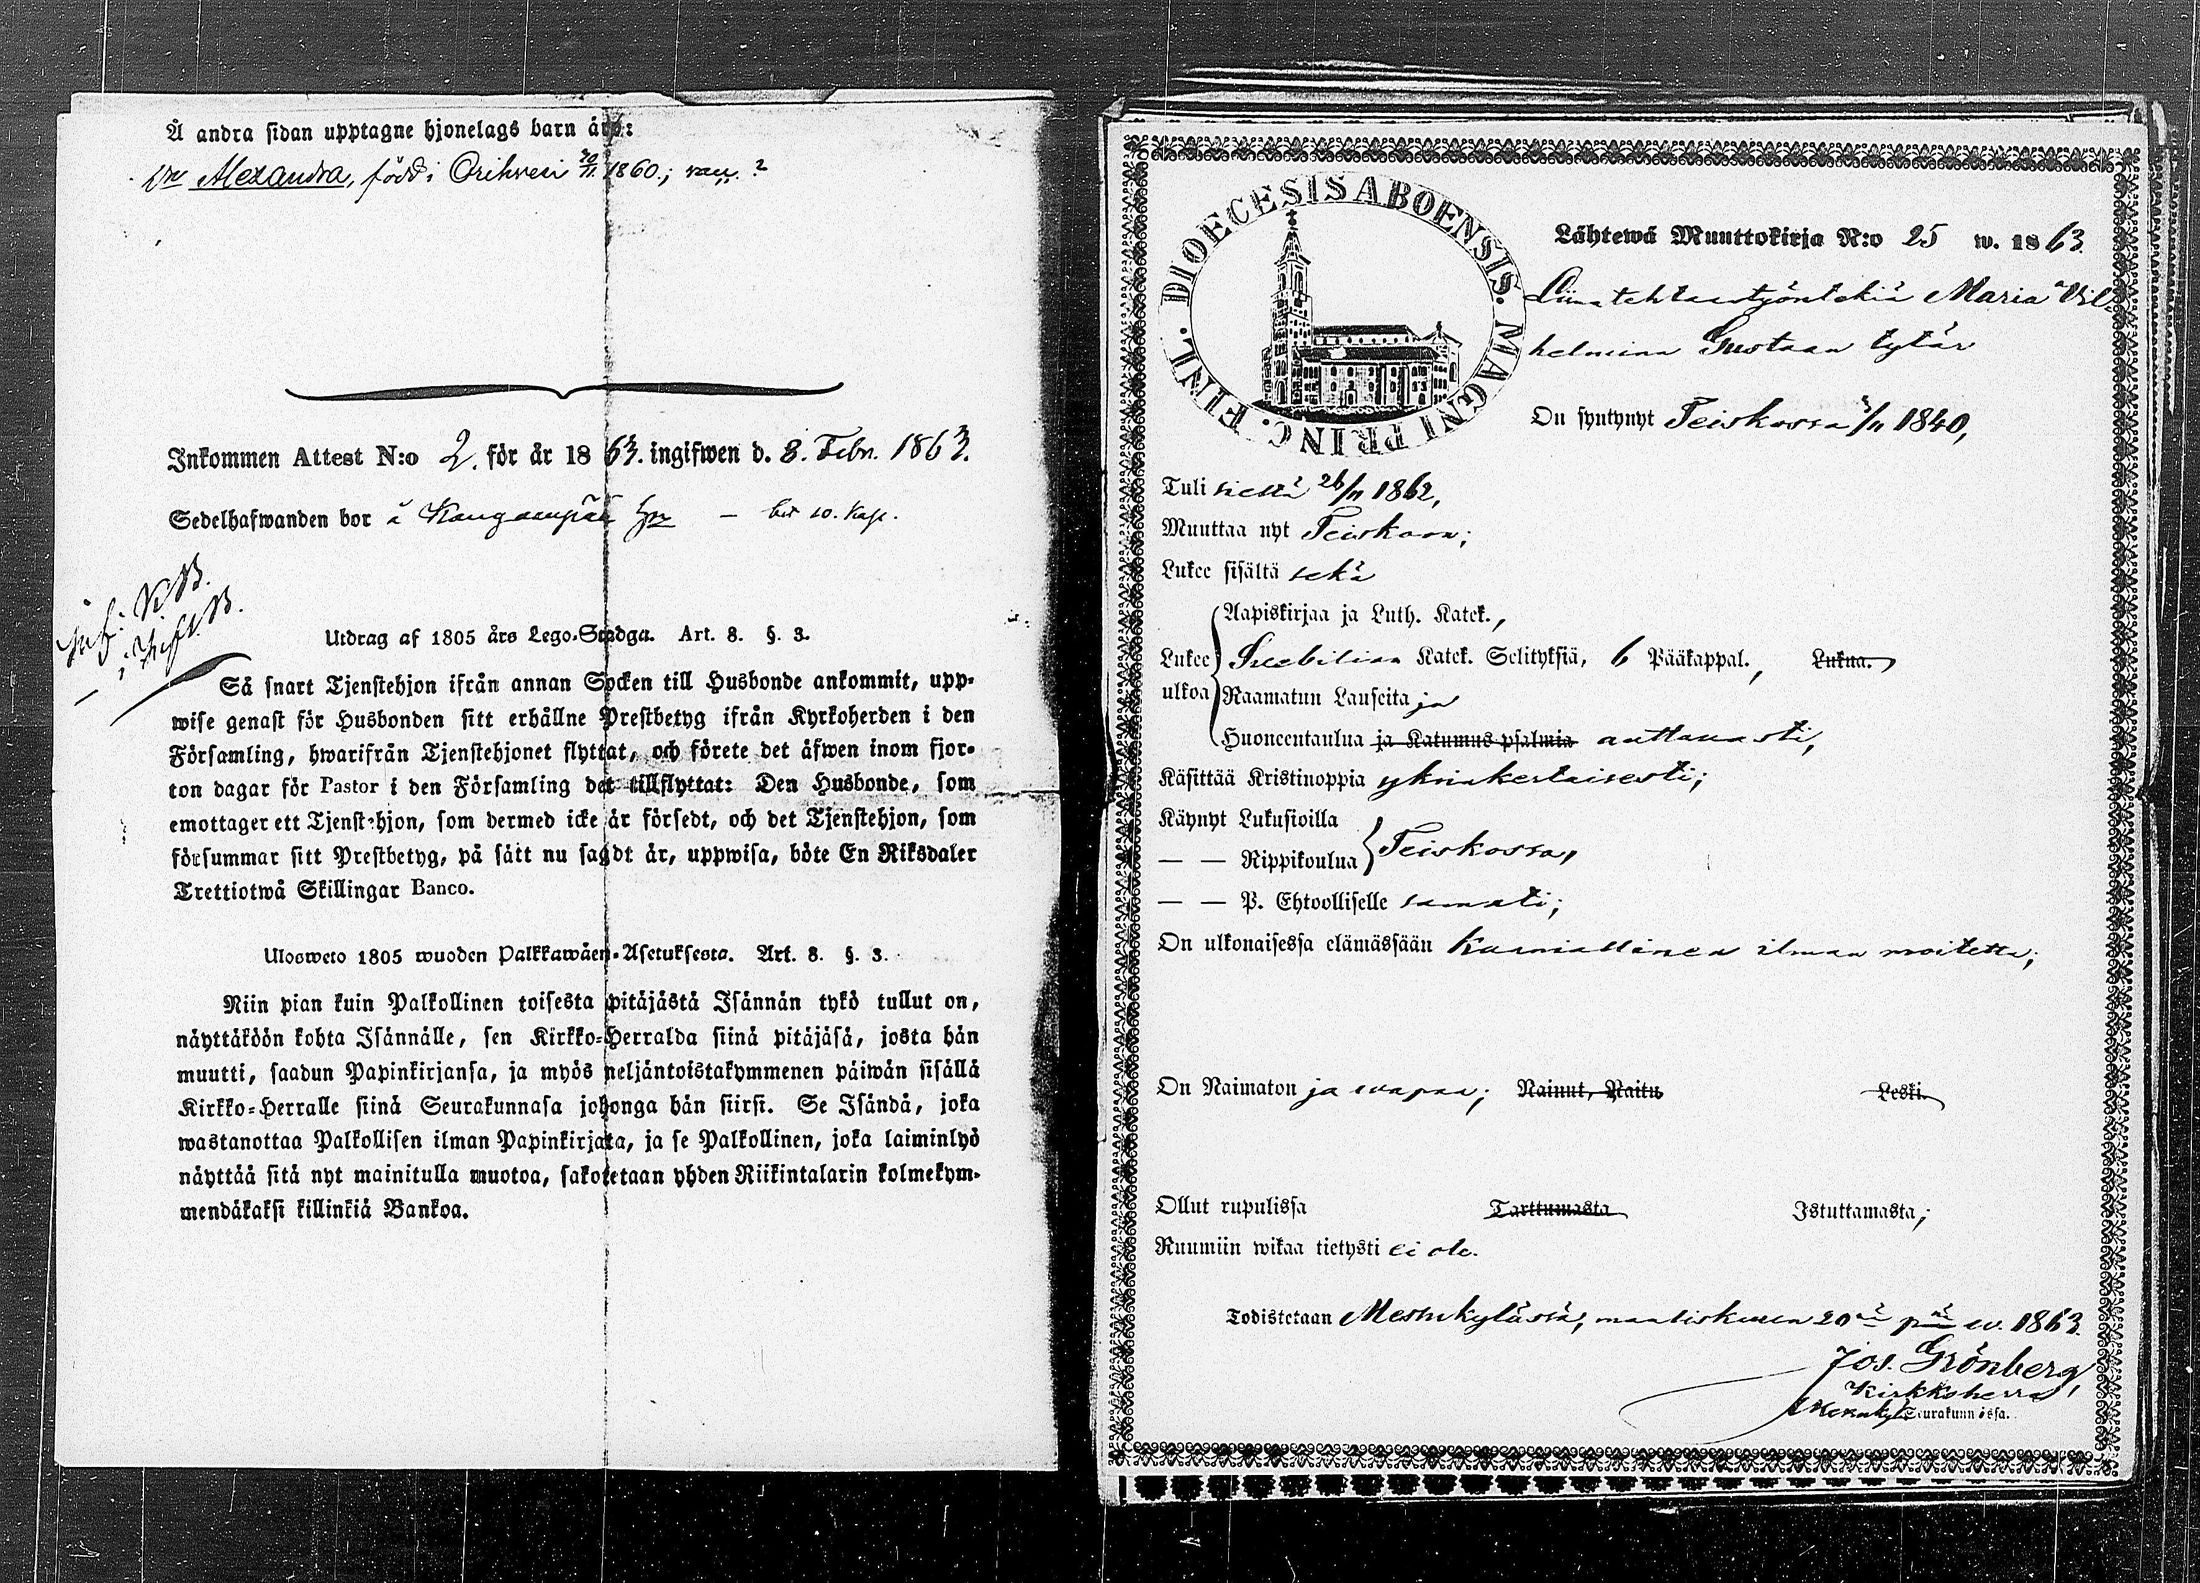 Å andra sidan upptagne hjonelags barn äro:
Alexandra, född i Orihvesi 1860.;
Inkommen Attest N:o 2. för år 1863. ingifwen d. 8. Febr. 1863.
Sedelhafwanden bor å Kangampää
Utdrag af 1805 års Lego-Stadga. Art. 8. §. 3.
Så snart Tjenstehjon ifrån annan Socken till Husbonde ankommit, upp-
wise genast för Husbonden sitt erhållne Prestbetyg ifrån Kyrkoherden i den
Församling, hwarifrån Tjenstehjonet flyttat, och förete det äfwen inom fjor-
ton dagar för Pastor i den Församling det tillflyttat: Den Husbonde, som
emottager ett Tjenstehjon, som dermed icke är försedt, och det Tjenstehjon, som
försummar sitt Prestbetyg, på sätt nu sagdt är, uppwisa, böte En Riksdaler
Trettiotwå Skillingar Banco.
Ulosweto 1805 wuoden Palkkawäen-Asetuksesta. Art. 8. §. 3.
Niin pian kuin Palkollinen toisesta pitäjästä Isännän tykö tullut on,
näyttäköön kohta Isännälle, sen Kirkko-Herralda siinä pitäjäsä, josta hän
muutti, saadun Papinkirjansa, ja myös neljäntoistakymmenen päiwän sisällä
Kirkko-Herralle siinä Seurakunnasa johonga hän siirsi. Se Isändä, joka
wastanottaa Palkollisen ilman Papinkirjata, ja se Palkollinen, joka laiminlyö
näyttää sitä nyt mainitulla muotoa, sakotetaan yhden Riikintalarin kolmekym-
mendäkaksi killinkiä Bankoa.
DIOECESIS ABOENSIS. MAGNI PRINC. FINL.
Lähtewä Muuttokirja N:o 25 w. 1863.
Liinatehtaantyöntekiä Maria Vil-
helmina Gustaan tytär
On syntynyt Teiskossa 5/11 1840,
Tuli sieltä 26/11 1862,
Muuttaa nyt Teiskoon;
Lukee sisältä sekä
Aapiskirjaa ja Luth. Katek.,
Lukee ulkoa Svebiliun Katek. Selityksiä, 6 Pääkappal., Lukua.
Raamatun Lauseita ja
Huoneentaulua ja Katumus-psalmia auttavasti,
Käsittää Kristinoppia yksinkertaisesti;
Käynyt Lukusioilla
— — Rippikoulua Teiskossa,
— — P. Ehtoolliselle samati;
On ulkonaisessa elämässään kunniallinen ilman moitetta;
On Naimaton ja wapaa; Nainut, Naitu Leski.
Ollut rupulissa Tarttumasta Istuttamasta;
Ruumiin wikaa tietysti ei ole.
Todistetaan Messukylässä, maaliskuun 20nä pnä w. 1863.
Jos. Grönberg,
Kirkkoherra
Messukylä Seurakunnassa.